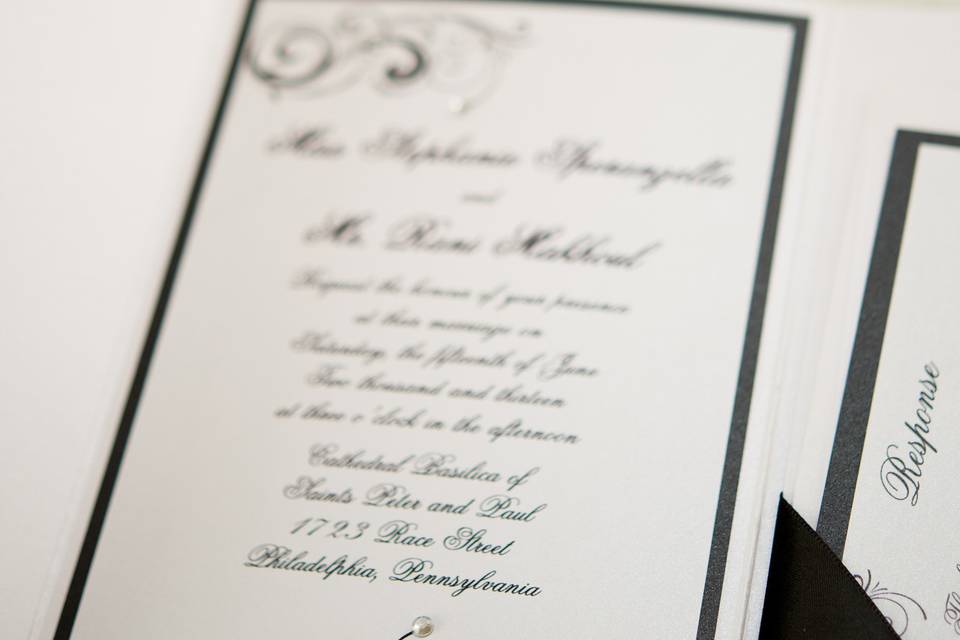 Miss Stephanie
and
Mr. Rami Makhoul
Request the honour of your presence
at their marriage on
Saturday, the fifteenth of June
Two thousand and thirteen
at three o'clock in the afternoon
Cathedral Basilica of
Saints Peter and Paul
1723 Race Street
Philadelphia, Pennsylvania
Response